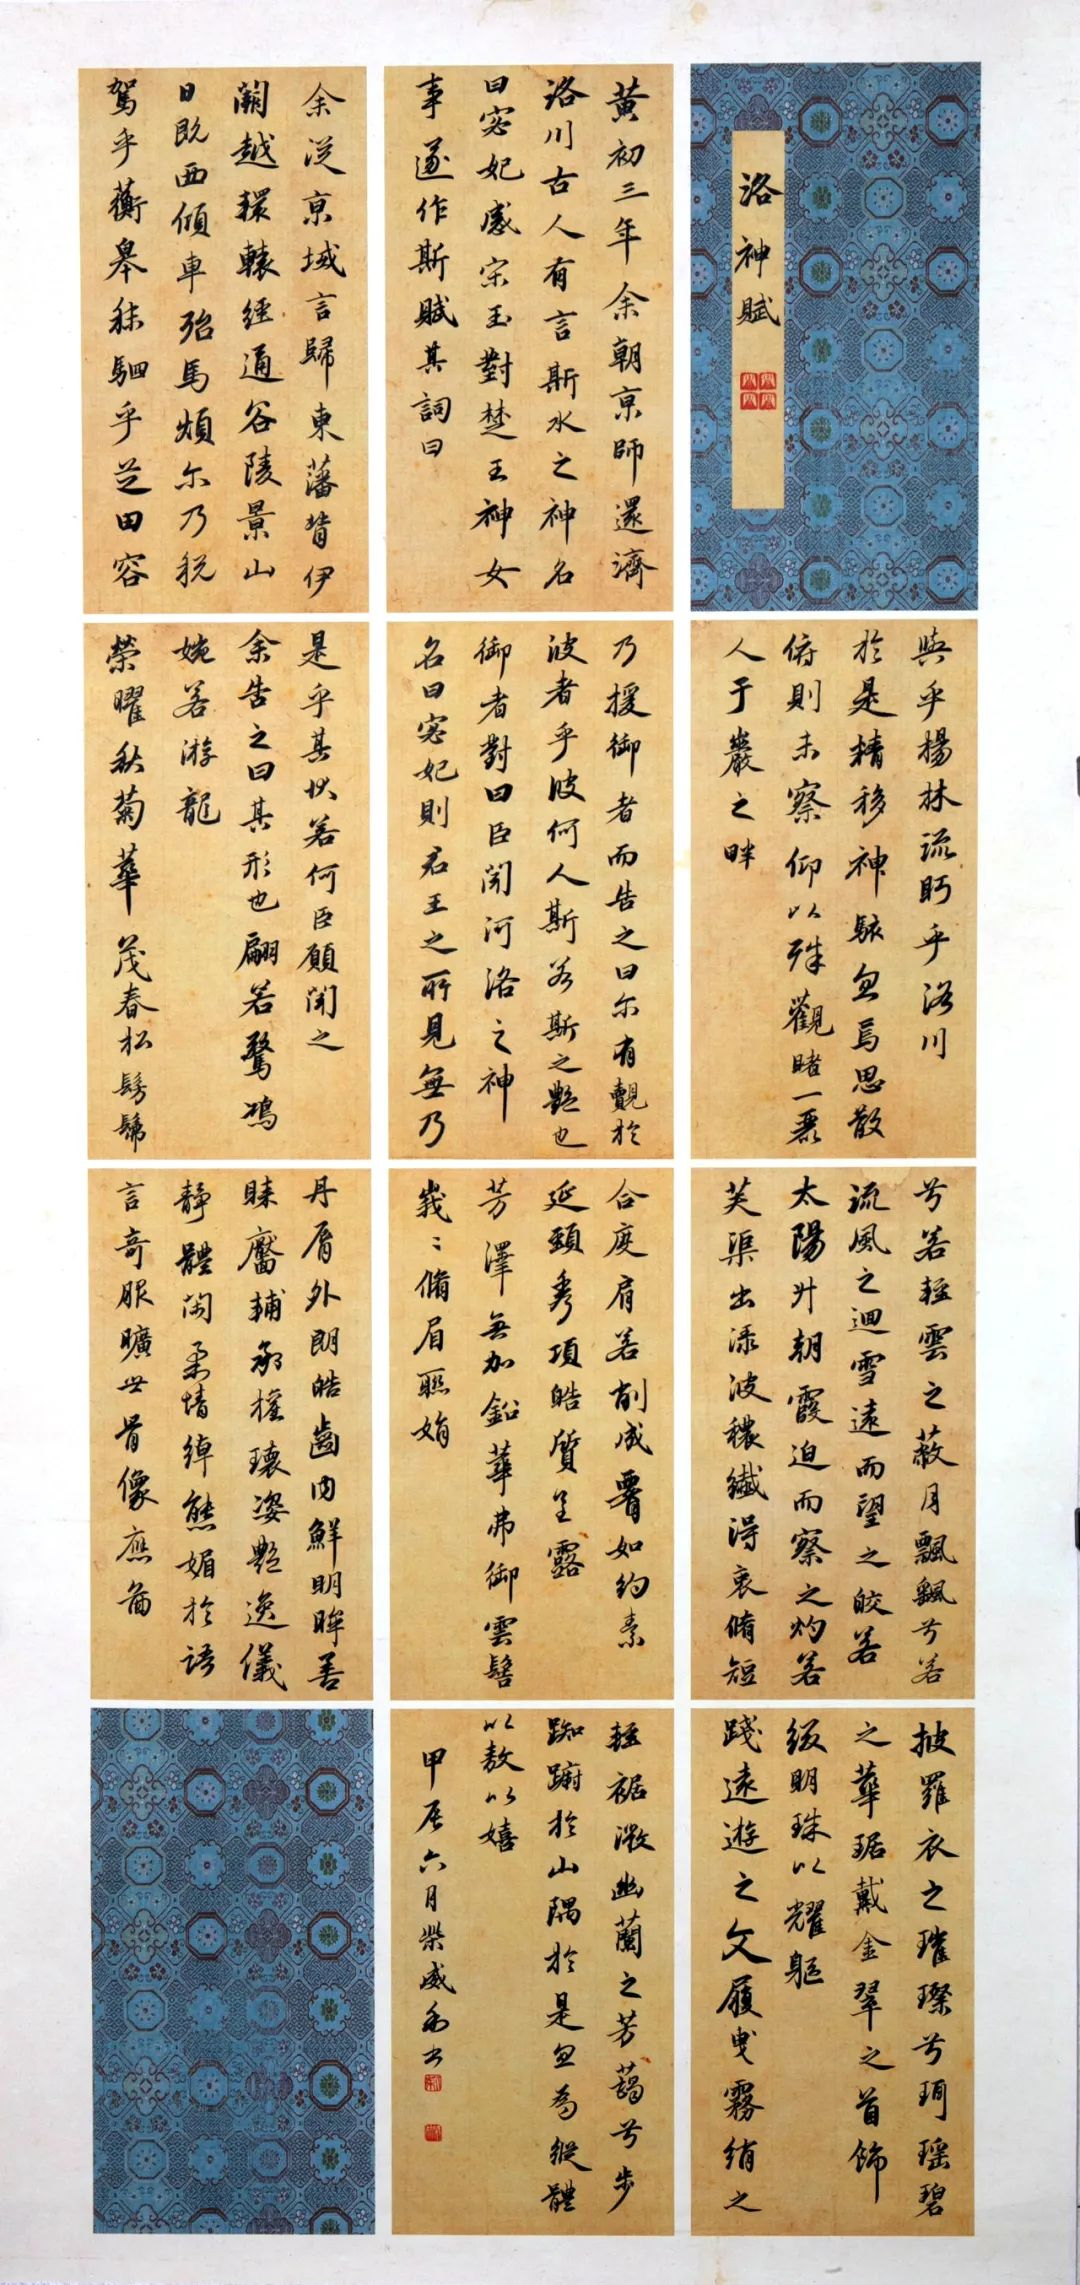 洛神賦
黃初三年余朝京師還濟
洛川古人有言斯水之神名
曰宓妃感宋玉對楚王神女
事遂作斯賦其詞曰
余從京域言歸東藩背伊
闕越轘轅經通谷陵景山
日既西傾車殆馬煩尔乃稅
駕乎蘅皋秣駟乎芝田容
與乎楊林流眄乎洛川
於是精移神駭忽焉思散
俯則未察仰以殊觀睹一麗
人于巖之畔
乃援御者而告之曰尔有覿於
彼者乎彼何人斯若斯之艷也
御者對曰臣聞河洛之神
名曰宓妃則君王之所見無乃
是乎其狀若何臣願聞之
余告之曰其形也翩若驚鴻
婉若游龍
榮曜秋菊華茂春松髣髴
兮若輕雲之蔽月飄飄兮若
流風之迴雪遠而望之皎若
太陽升朝霞迫而察之灼若
芙渠出淥波穠纖得衷脩短
合度肩若削成腰如約素
延頸秀項皓質呈露
芳澤無加鉛華弗御雲髻
峩〻脩眉聯娟
丹脣外朗皓齒內鮮明眸善
睞靨輔承權瓌姿艷逸儀
靜體閑柔情綽態媚於語
言奇服曠世骨像應圖
披羅衣之璀璨兮珥瑤碧
之華琚戴金翠之首飾
綴明珠以耀軀
踐遠遊之文履曳霧綃之
輕裾微幽蘭之芳藹兮步
踟躕於山隅於是忽焉縱體
以敖以嬉
甲辰六月柴威 書